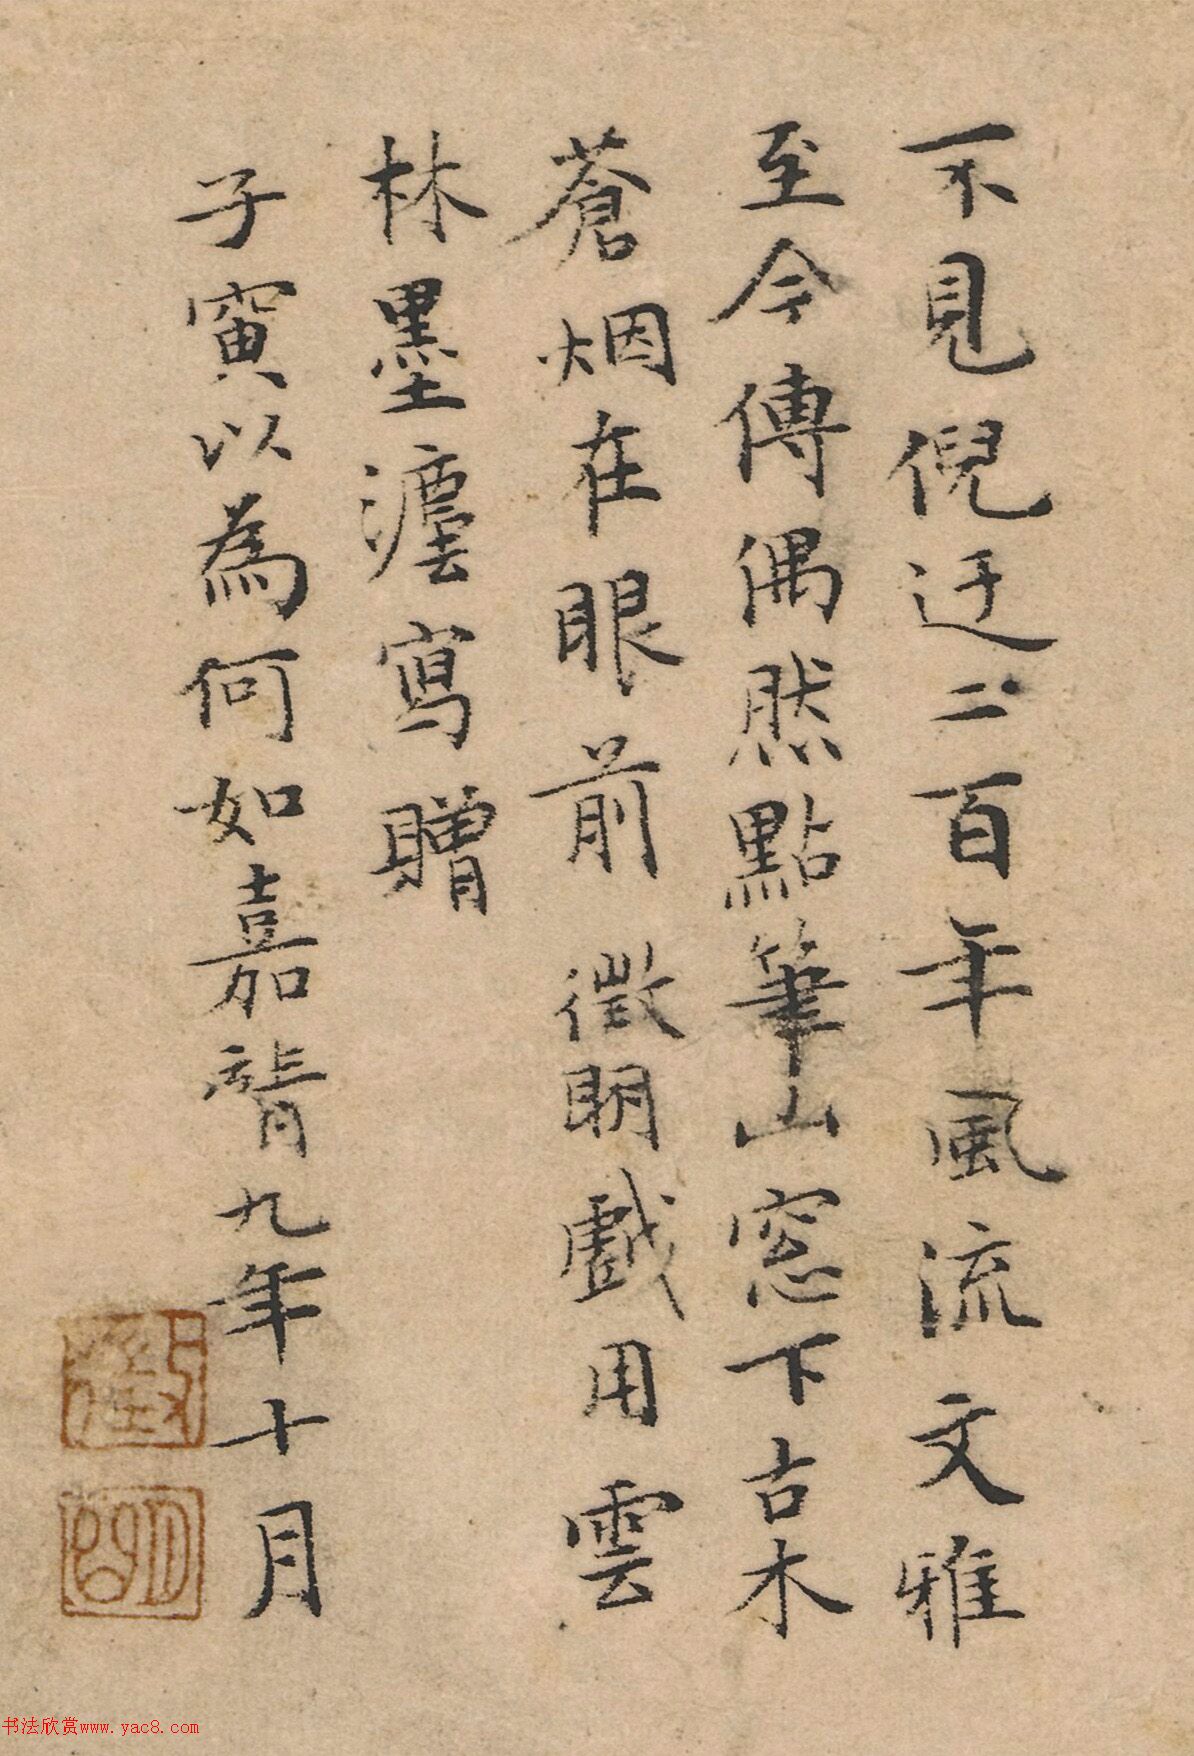 不見倪迂二百年風流文雅
至今傳偶然點筆山窓下古木
蒼烟在眼前 徵明戲用雲
林墨瀍寫贈
子寅以為何如嘉靖九年十月
書法欣赏www.yac8.com